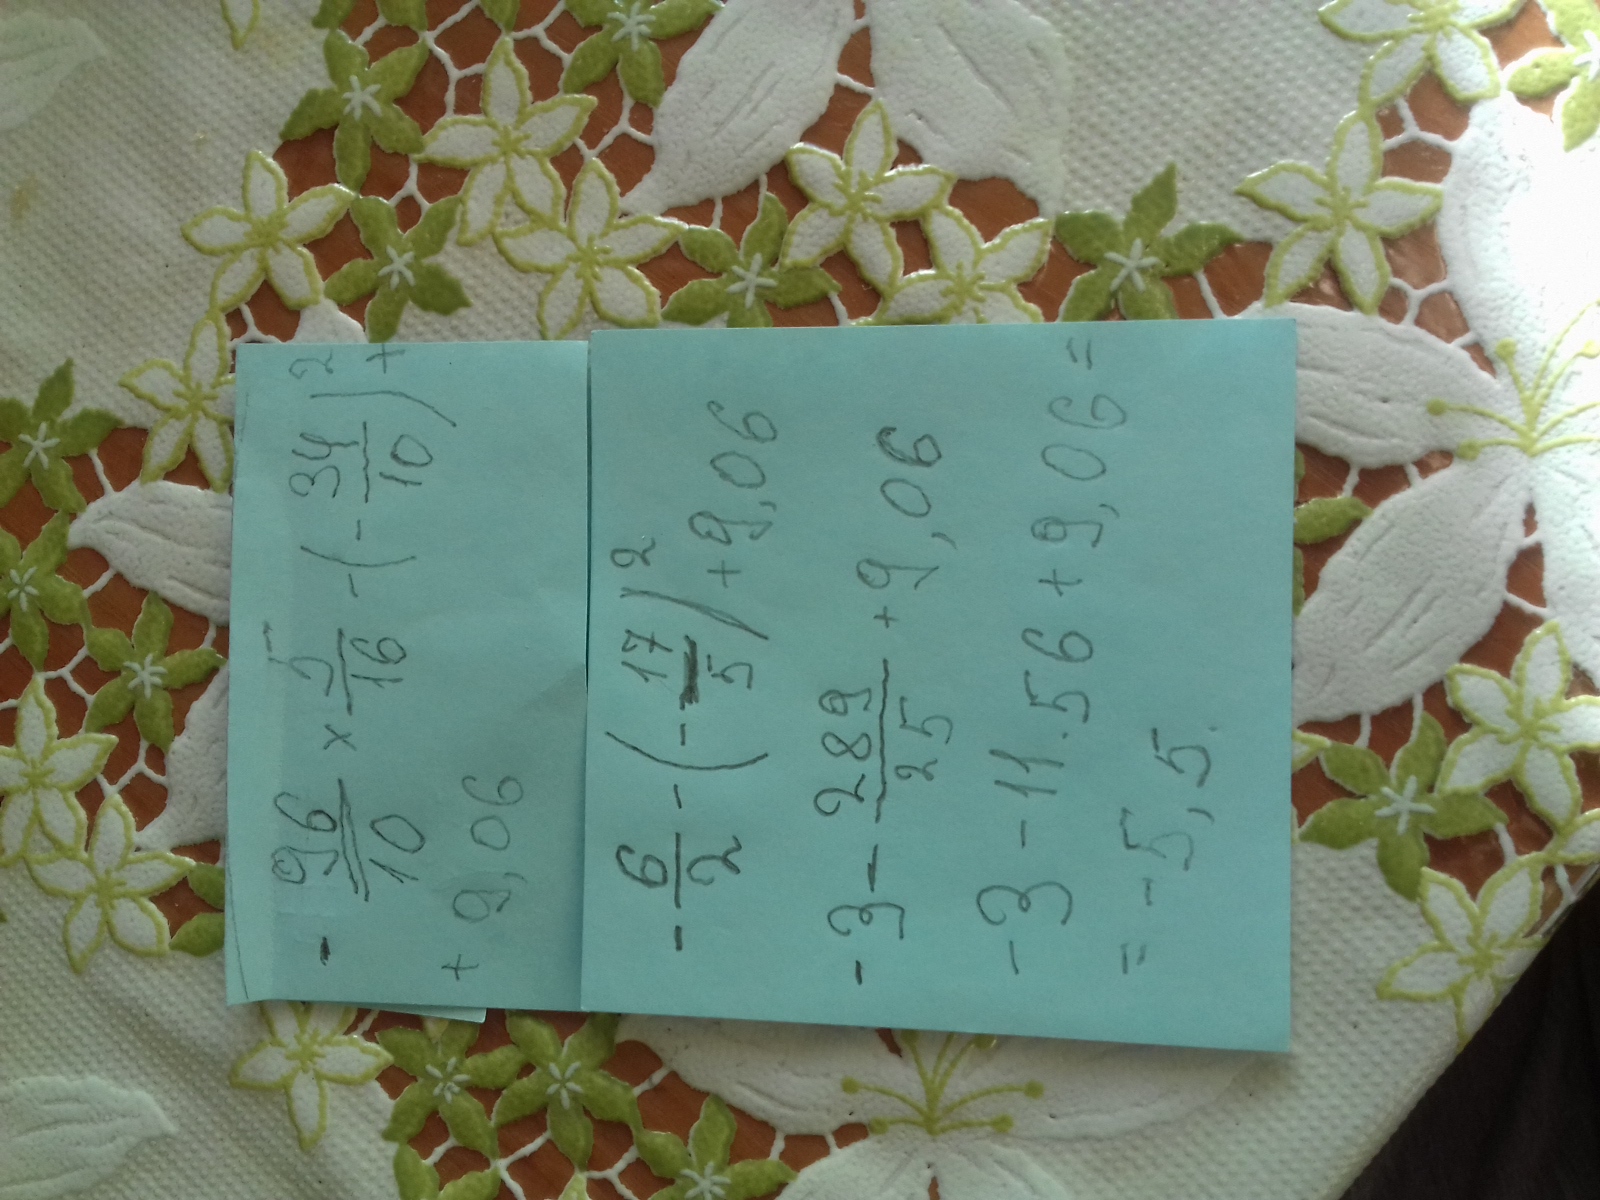 - 96/10 x 5/16 - (- 34/10)² +
+ 9,06
- 6/2 - (- 17/5)² + 9,06
- 3 - 289/25 + 9,06
- 3 - 11.56 + 9,06 =
= - 5,5